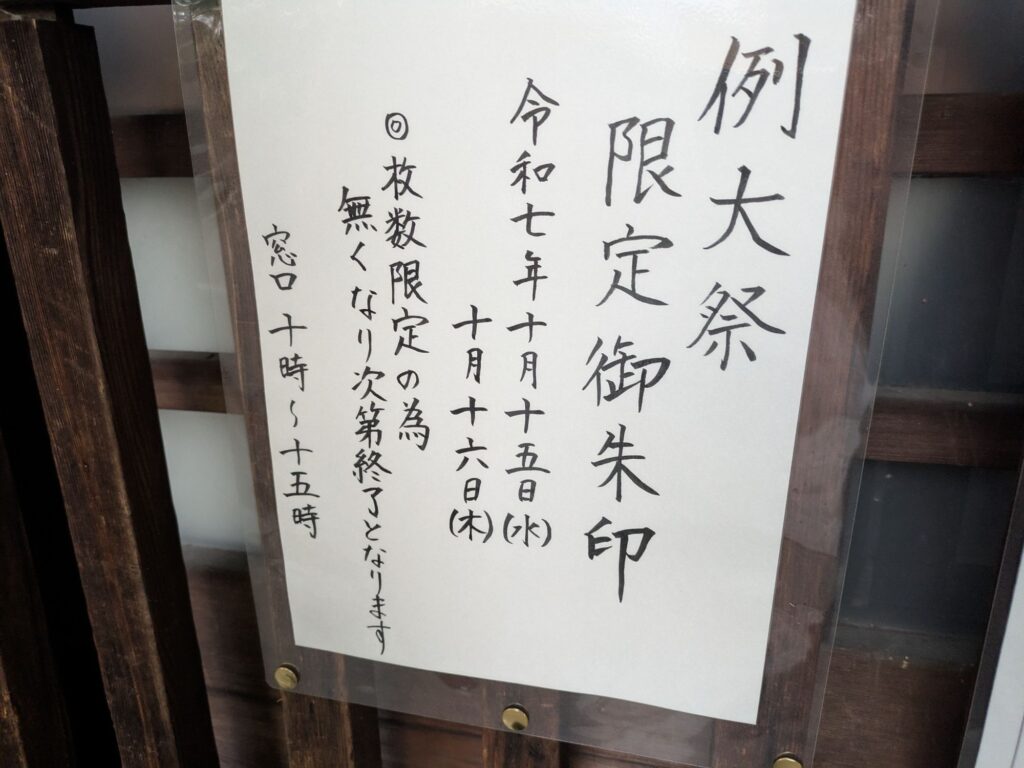 例大祭
限定御朱印
令和七年十月十五日(水)
十月十六日(木)
◎枚数限定の為
無くなり次第終了となります
窓口 十時〜十五時